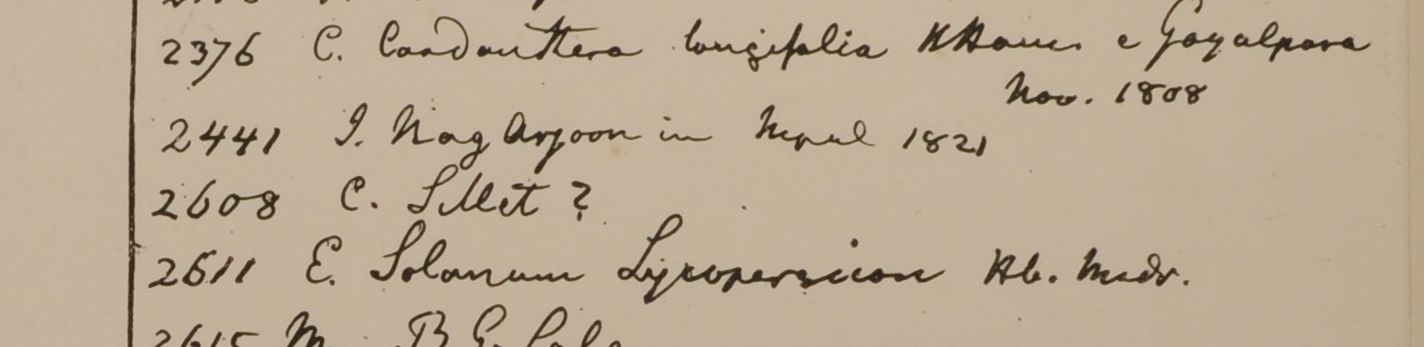 2376 C. Cardanttera longifolia HHam. e Goyalpara
Nov. 1808
2441 I. Nag Arjoon in Nepal 1821
2608 C. Sillet ?
2611 E. Solanum Lycopersicon Hb. Madr.
2615 M. B. G.